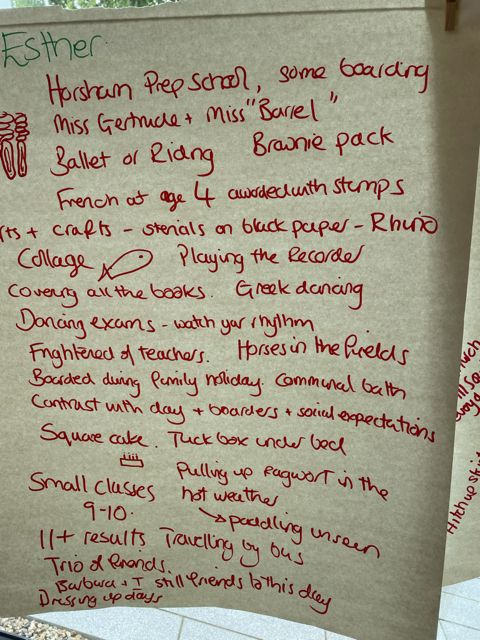 Esther
Horsham Prep School, some boarding
Miss Gertrude + Miss "Barrel"
Ballet or Riding Brownie pack
French at age 4 awarded with stamps
rts + crafts - stencils on black paper - Rhino
Collage Playing the Recorder
Covering all the books. Greek dancing
Dancing exams - watch your rhythm
Frightened of teachers. Horses in the fields
Boarded during family holiday. Communal bath
Contrast with day + boarders + social expectations
Square cake. Tuck box under bed
Small classes
9-10.
Pulling up ragwort in the
hot weather
→ paddling unseen
11+ results Travelling by bus
Trio of friends.
Barbara + I still friends to this day
Dressing up days
Hitch up